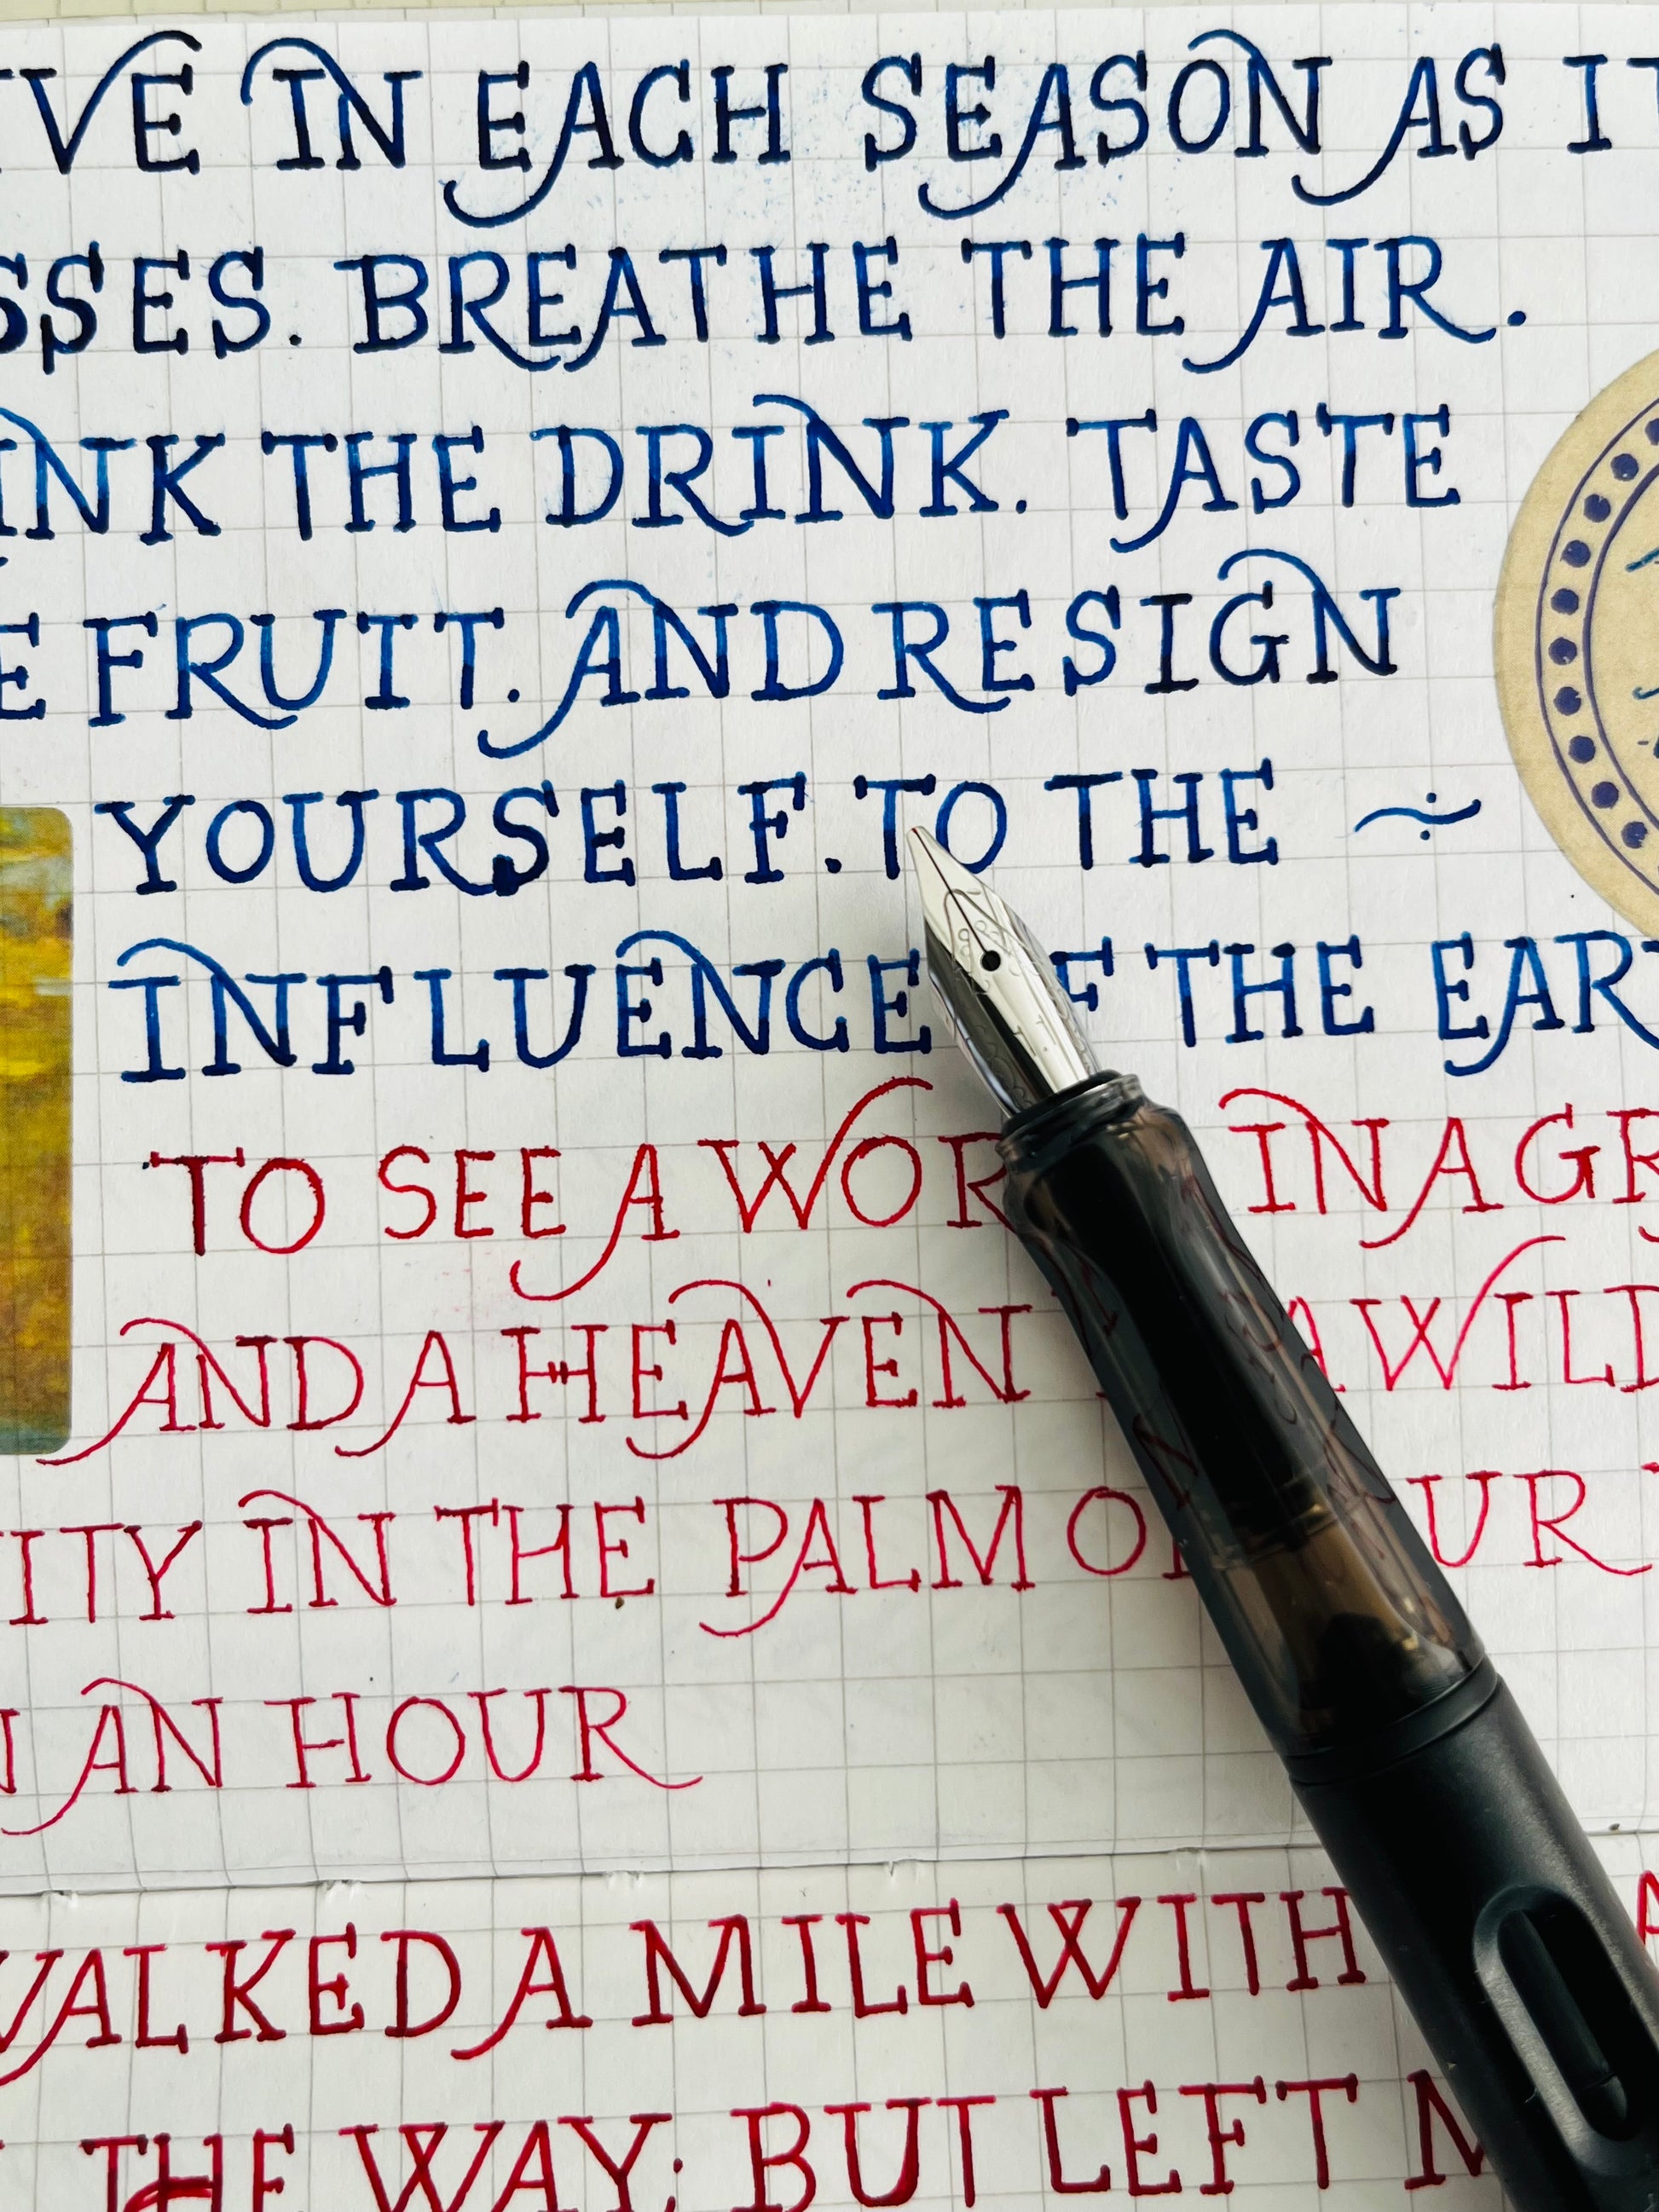 IVE IN EACH SEASON AS IT
SSES. BREATHE THE AIR.
INK THE DRINK. TASTE
E FRUIT. AND RESIGN
YOURSELF. TO THE
INFLUENCE F THE EAR
TO SEE A WOR IN A GR
AND A HEAVEN A WILD
ITY IN THE PALM OF UR
N AN HOUR
WALKED A MILE WITH
THE WAY; BUT LEFT M